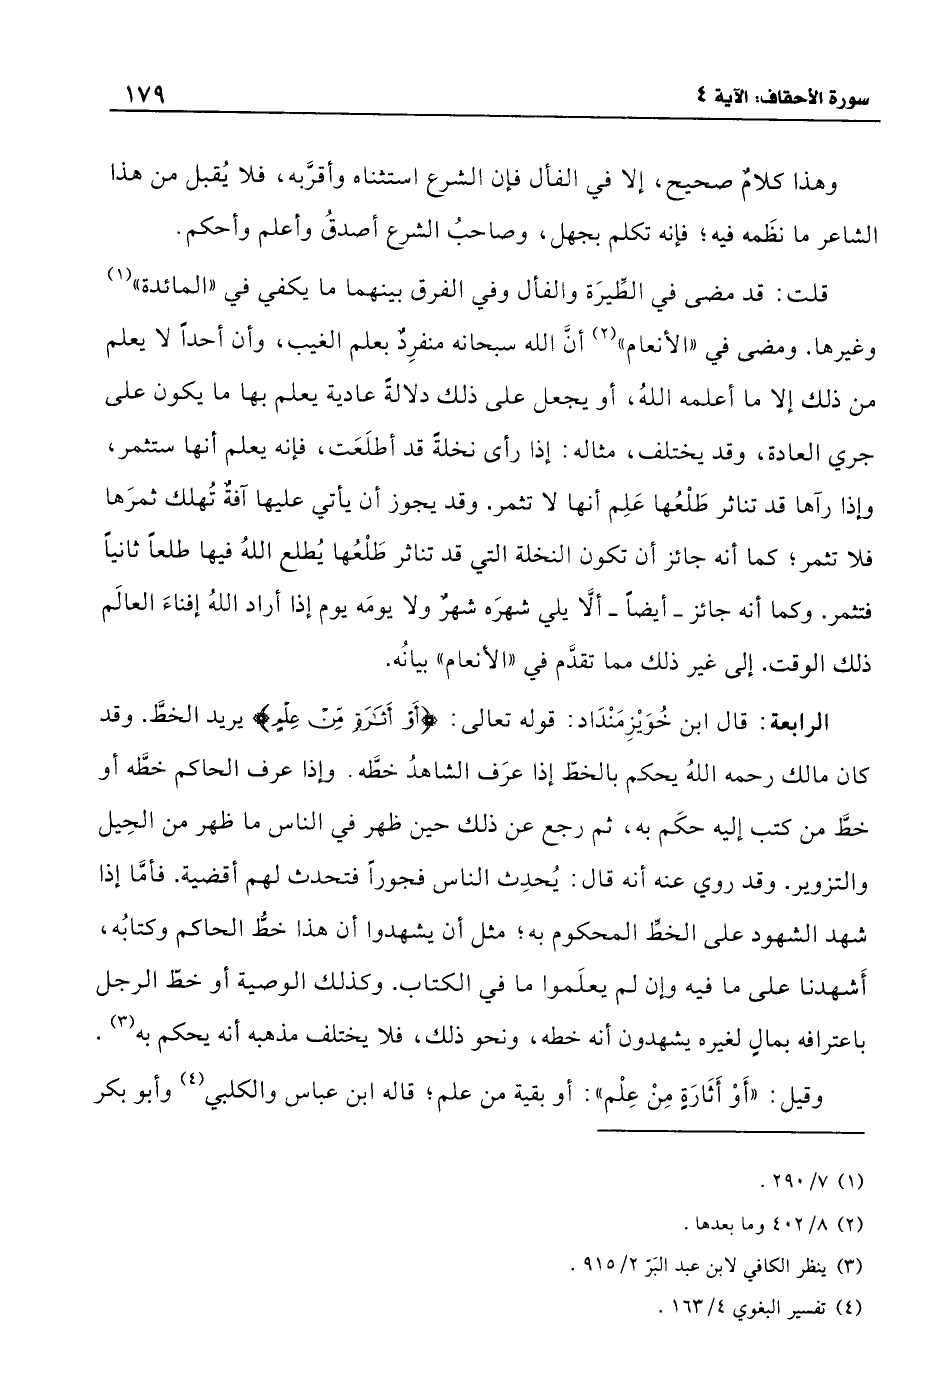 سورة الأحقاف: الآية ٤ ١٧٩
وهذا كلامٌ صحيح، إلا في الفأل فإن الشرع استثناه وأقرَّبه، فلا يُقبل من هذا
الشاعر ما نظَمه فيه؛ فإنه تكلم بجهل، وصاحبُ الشرع أصدقُ وأعلم وأحكم.
قلت: قد مضى في الطِّيرَة والفأل وفي الفرق بينهما ما يكفي في «المائدة»(١)
وغيرها. ومضى في «الأنعام»(٢) أنَّ الله سبحانه منفرِدٌ بعلم الغيب، وأن أحداً لا يعلم
من ذلك إلا ما أعلمه اللهُ، أو يجعل على ذلك دلالةً عادية يعلم بها ما يكون على
جري العادة، وقد يختلف، مثاله: إذا رأى نخلةً قد أطلَعَت، فإنه يعلم أنها ستثمر،
وإذا رآها قد تناثر طَلْعُها عَلِم أنها لا تثمر. وقد يجوز أن يأتي عليها آفةٌ تُهلك ثمرَها
فلا تثمر؛ كما أنه جائز أن تكون النخلة التي قد تناثر طَلْعُها يُطلع اللهُ فيها طلعاً ثانياً
فتثمر. وكما أنه جائز ـ أيضاً ـ ألَّا يلي شهرَه شهرٌ ولا يومَه يوم إذا أراد اللهُ إفناءَ العالَم
ذلك الوقت. إلى غير ذلك مما تقدَّم في «الأنعام» بيانُه.
الرابعة: قال ابن خُوَيْزِمَنْدَاد: قوله تعالى: ﴿أَوْ أَثَٰرَةٍ مِّنْ عِلْمٍ﴾ يريد الخطَّ. وقد
كان مالك رحمه اللهُ يحكم بالخطّ إذا عرَف الشاهدُ خطَّه. وإذا عرف الحاكم خطَّه أو
خطَّ من كتب إليه حكَم به، ثم رجع عن ذلك حين ظهر في الناس ما ظهر من الحِيل
والتزوير. وقد روي عنه أنه قال: يُحدِث الناس فجوراً فتحدث لهم أقضية. فأمَّا إذا
شهد الشهود على الخطِّ المحكوم به؛ مثل أن يشهدوا أن هذا خطُّ الحاكم وكتابُه،
أَشهدنا على ما فيه وإن لم يعلَموا ما في الكتاب. وكذلك الوصية أو خطّ الرجل
باعترافه بمالٍ لغيره يشهدون أنه خطه، ونحو ذلك، فلا يختلف مذهبه أنه يحكم به(٣).
وقيل: «أَوْ أَثَارَةٍ مِنْ عِلْم»: أو بقية من علم؛ قاله ابن عباس والكلبي(٤) وأبو بكر
(١) ٧/ ٢٩٠.
(٢) ٨/ ٤٠٢ وما بعدها.
(٣) ينظر الكافي لابن عبد البَرّ ٢/ ٩١٥.
(٤) تفسير البغوي ٤/ ١٦٣.